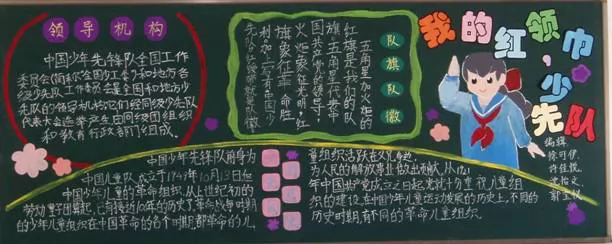 领导机构
中国少年先锋队全国工作
委员会(简称全国少工委)和地方各
级少先队工作委员会是全国和地方少
先队的领导机构它们经同级少先队
代表大会选举产生由同级团组织
和教育行政部门组成。
队旗队徽
五角星加火炬的
红旗是我们的队
旗,五角星代表中
国共产党的领导,
火炬象征光明,红
旗象征革命胜
利
我的红领巾,少先队
编辑
中国少年先锋队前身为
中国儿童队,成立于1949年10月13日
中国少年儿童的革命组织,从上世纪初的
劳动童子团算起,已有接近10年的历史了革命战争时期
的少年儿童组织在中国革命的各个时期,都革命的少儿
童组织活跃在
为人民的解放事业做出贡献,从1921
年中国共产党成立之日起,党就十分重视儿童组
织的建设,在中国少年儿童运动发展的历史上,不同的
历史时期,有不同的革命儿童组织。